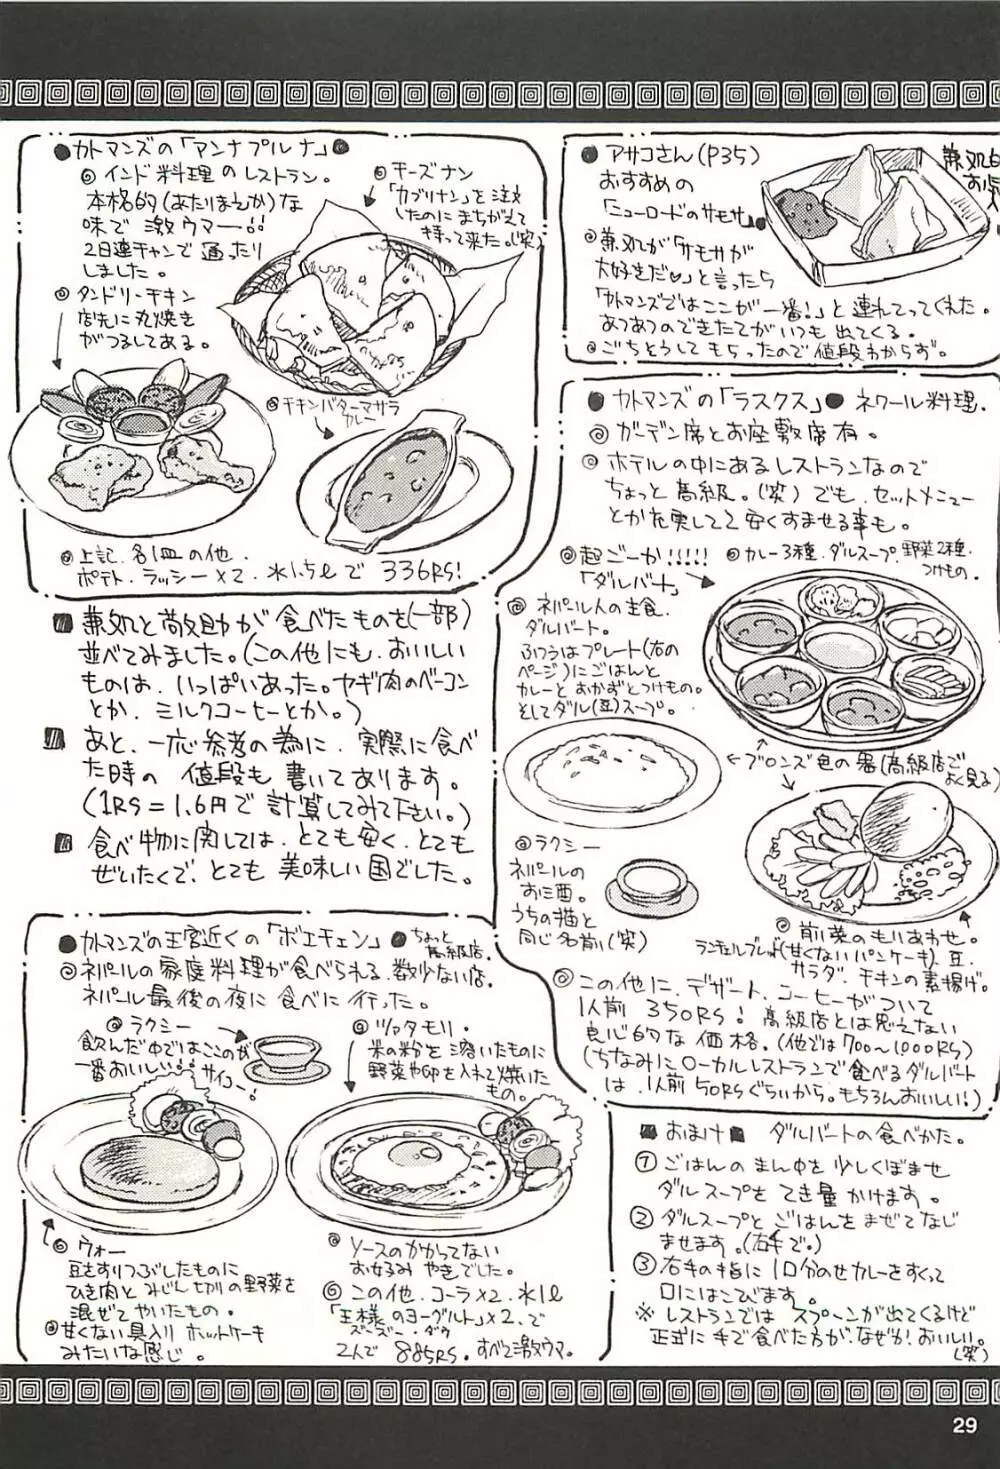 ●カトマンズの「アンナプルナ」●
◎インド料理のレストラン。
本格的(あたりまえか)な
味で激ウマー!!
2日連チャンで通ったり
しました。
◎チーズナン
「カブリナン」を注文
したのにまちがえて
持って来た。(笑)
◎タンドリーチキン
店先に丸焼き
がつるしてある。
◎チキンバターマサラ
カレー
◎上記、各1皿の他、
ポテト、ラッシー×2、水1.5ℓで 336RS!
■兼処と敬助が食べたものを(一部)
並べてみました。(この他にも、おいしい
ものは、いっぱいあった。ヤギ肉のベーコン
とか、ミルクコーヒーとか。)
■あと、一応参考の為に、実際に食べ
た時の値段も書いてあります。
(1RS=1.6円で計算してみて下さい。)
■食べ物に関しては、とても安く、とても
ぜいたくで、とても美味しい国でした。
●カトマンズの王宮近くの「ボエチェン」●ちょっと
高級店。
◎ネパールの家庭料理が食べられる、数少ない店。
ネパール最後の夜に食べに行った。
◎ラクシー
飲んだ中ではここのが
一番おいしい!!サイコー!
◎ツァタモリ・
米の粉を溶いたものに
野菜や卵を入れて焼いた
もの。
◎ウォー
豆をすりつぶしたものに
ひき肉とみじん切りの野菜を
混ぜてやいたもの。
◎甘くない具入りホットケーキ
みたいな感じ。
◎ソースのかかってない
お好み やきでした。
◎この他、コーラ×2、水1ℓ
「王様のヨーグルト」×2、で
ズーズー・ダウ
2人で 885RS。すべて激ウマ。
●アサコさん(P35)
おすすめの
「ニューロードのサモサ」●
◎兼処が「サモサが
大好きだ♡」と言ったら
「カトマンズではここが一番!」と連れてってくれた。
あつあつのできたてがいつも出てくる。
◎ごちそうしてもらったので値段わからず。
兼処も
お気
●カトマンズの「ラスクス」●ネワール料理.
◎ガーデン席とお座敷席有。
◎ホテルの中にあるレストランなので
ちょっと高級。(笑)でも、セットメニュー
とか充実してて安くすませる事も。
◎超ごーか!!!!!
「ダルバート」
◎カレー3種、ダルスープ、野菜2種、
つけもの.
◎ネパール人の主食、
ダルバート。
ふつうはプレート(右の
ページ)にごはんと
カレーとおかずとつけもの。
そしてダル(豆)スープ。
←ブロンズ色の器(高級店でよく見る)
◎ラクシー
ネパールの
お酒。
うちの猫と
同じ名前(笑)
◎前菜のもりあわせ。
ランチェルブレッド(甘くないパンケーキ)、豆、
サラダ、チキンの素揚げ。
◎この他に、デザート、コーヒーがついて
1人前 350RS!高級店とは思えない
良心的な価格。(他では700~1000RS)
(ちなみにローカルレストランで食べるダルバート
は、1人前50RSぐらいから。もちろんおいしい!)
■おまけ■ ダルバートの食べかた。
①ごはんのまん中を少しくぼませ
ダルスープをてき量かけます。
②ダルスープとごはんをまぜてなじ
ませます。(右手で。)
③右手の指に1口分のせカレーをすくって
口にはこびます。
※レストランではスプーンが出てくるけど
正式に手で食べた方が、なぜか!おいしい。
(笑)
29